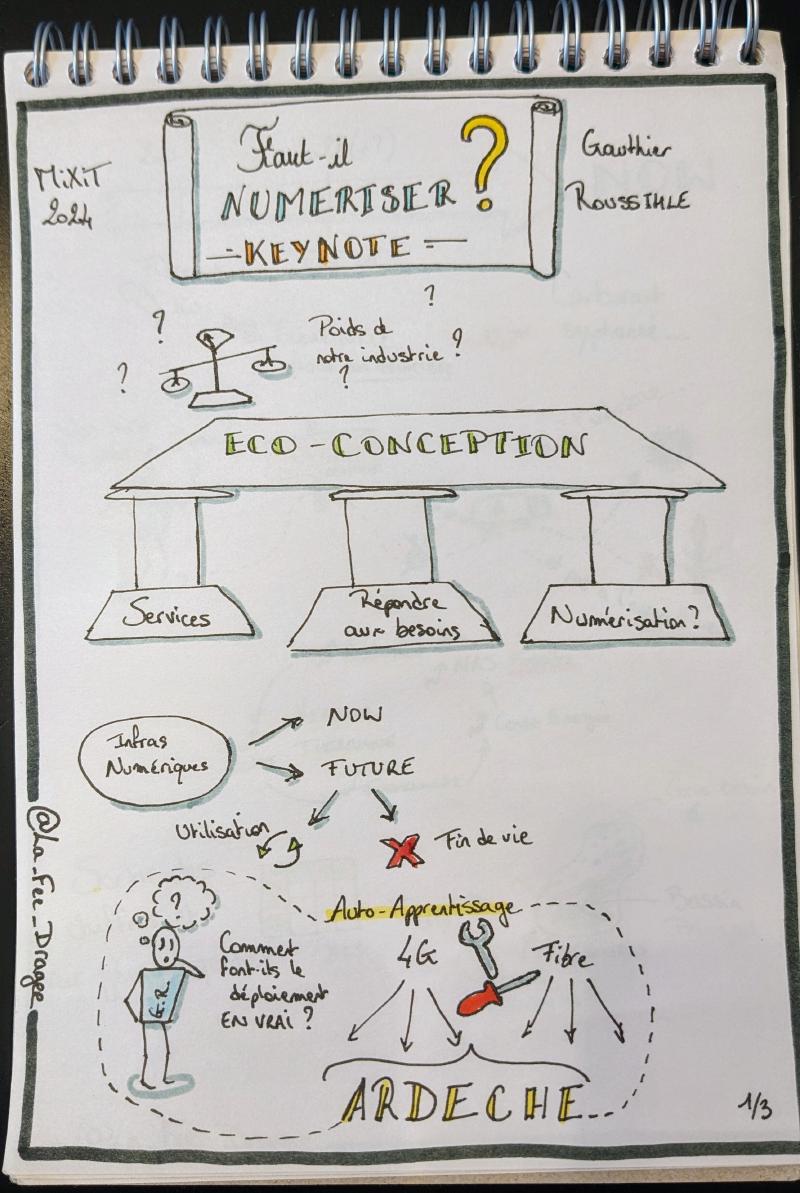 MiXiT
2024
Faut-il
NUMERISER ?
- KEYNOTE -
Gauthier
ROUSSIHLE
?
?
?
Poids de
notre industrie ?
?
ECO-CONCEPTION
Services
Répondre
aux besoins
Numérisation ?
Infras
Numériques
NOW
FUTURE
Utilisation
Fin de vie
@La_Fee_Dragee
?
G.R.
Comment
font-ils le
déploiement
EN VRAI ?
Auto-Apprentissage
4G
Fibre
ARDECHE
1/3